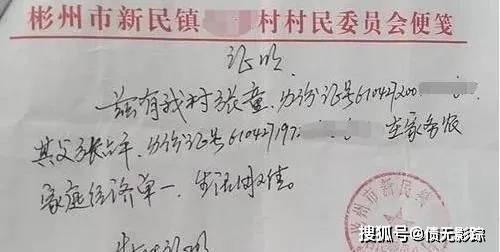 彬州市新民镇 村村民委员会便笺
证明
兹有我村张童,身份证号610427200
其父张占平,身份证号61042719? 在家务农
家庭经济单一,生活困难。
特此证明
彬州市新民镇
搜狐号@债无影踪